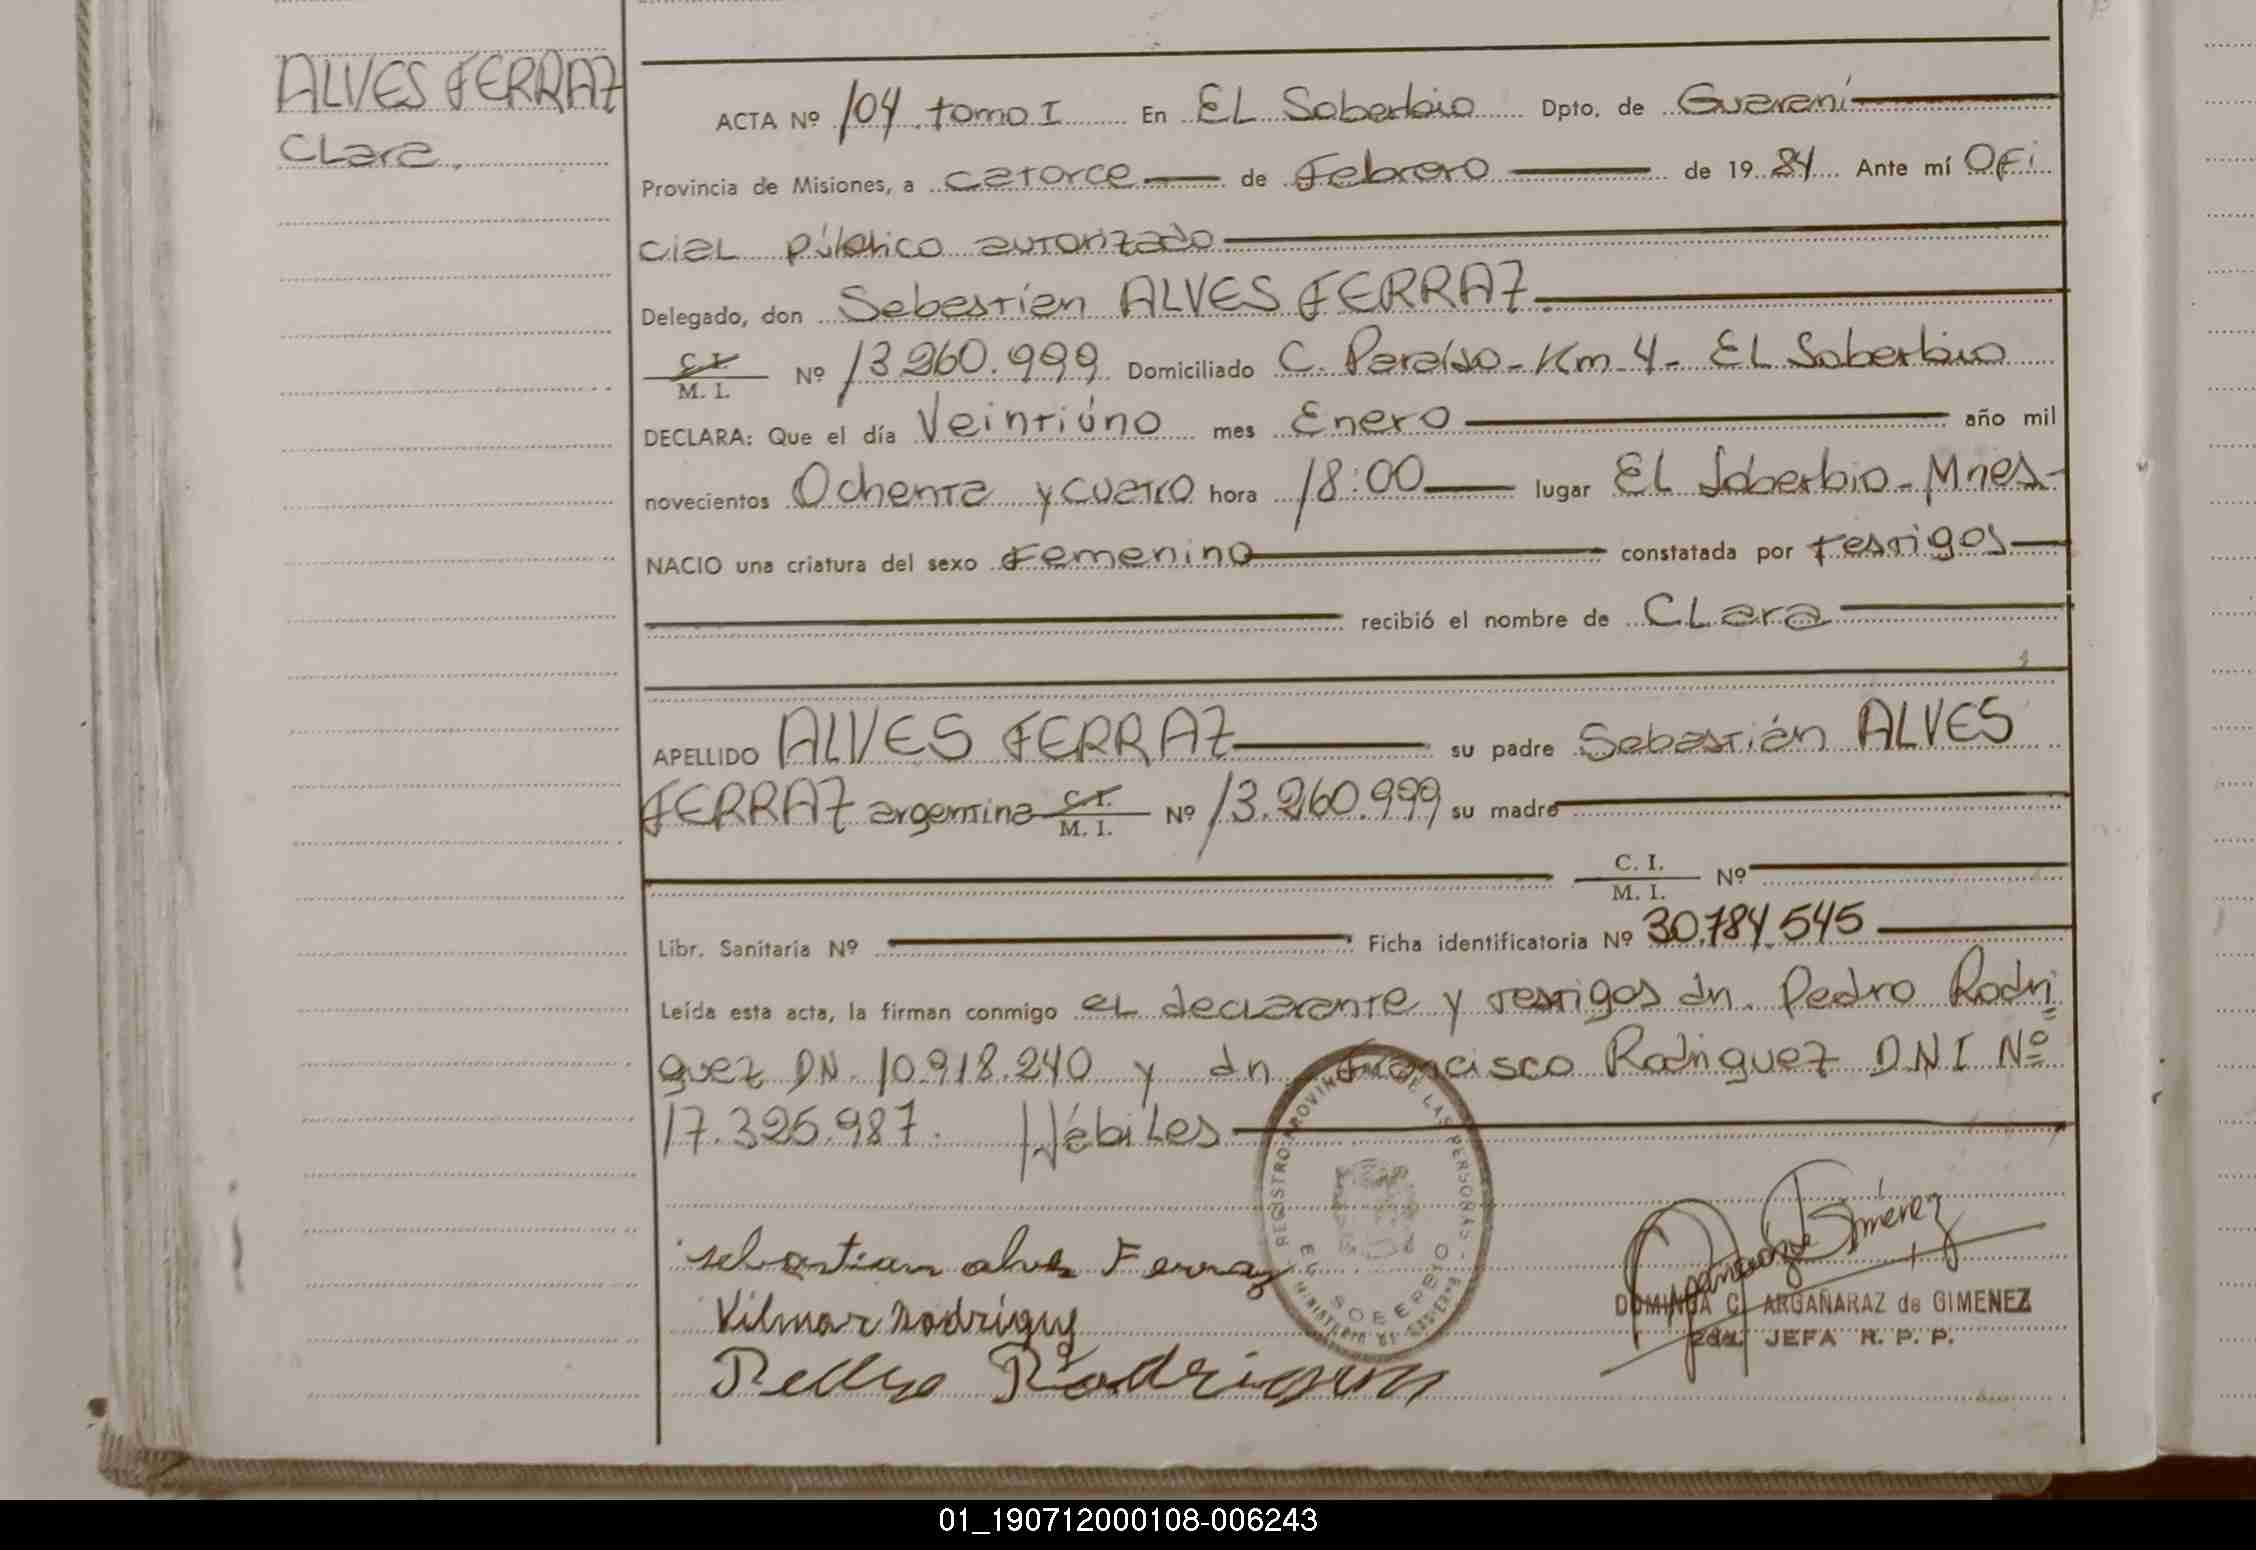 ALVES FERRAZ
Clara.
ACTA Nº 104 tomo I En EL Soberbio Dpto. de Guaraní
Provincia de Misiones, a catorce de Febrero de 19 84 Ante mí Ofi
cial público autorizado
Delegado, don Sebastián ALVES FERRAZ.
C. I.
M. I. Nº 13.260.999 Domiciliado C. Paraíso - Km 4 - EL Soberbio
DECLARA: Que el día Veintiúno mes Enero año mil
novecientos Ochenta y cuatro hora 18:00 lugar EL Soberbio - Mnes -
NACIO una criatura del sexo Femenino constatada por testigos
recibió el nombre de CLara
APELLIDO ALVES FERRAZ su padre Sebastián ALVES
FERRAZ argentina C. I. M. I. Nº 13.260.999 su madre
C. I.
M. I. Nº
Libr. Sanitaria Nº Ficha identificatoria Nº 30.784.545
Leída esta acta, la firman conmigo el declarante y testigos dn. Pedro Rodri
guez DN. 10.918.240 y dn Francisco Rodriguez D.N.I Nº
17.325.987. Hábiles
REGISTRO PROVINCIAL DE LAS PERSONAS - MINISTERIO DE GOBIERNO
EL SOBERBIO
sebastian alves Ferraz
Vilmar Rodriguez
Pedro Rodriguez
Gimenez
DOMINGA C. ARGAÑARAZ de GIMENEZ
2da. JEFA R. P. P.
01_190712000108-006243